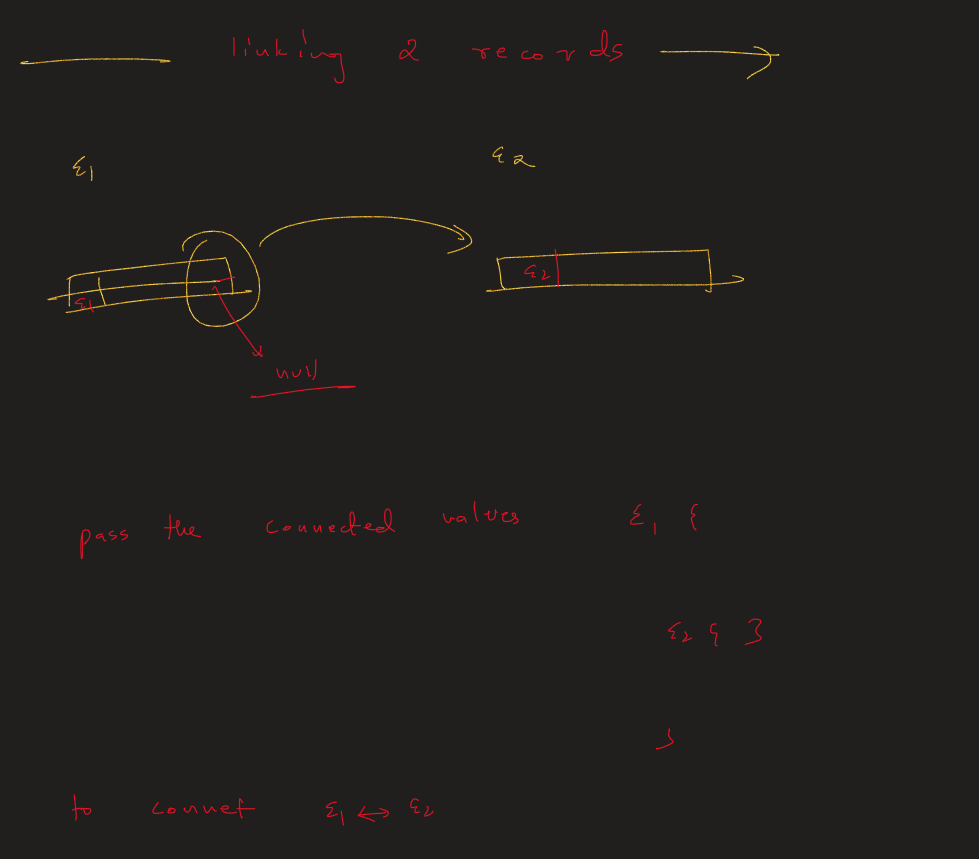 linking 2 records
ε1 ε2
ε1 ε2
null
pass the connected values ε1 {
ε2 { }
}
to connet ε1 ↔ ε2